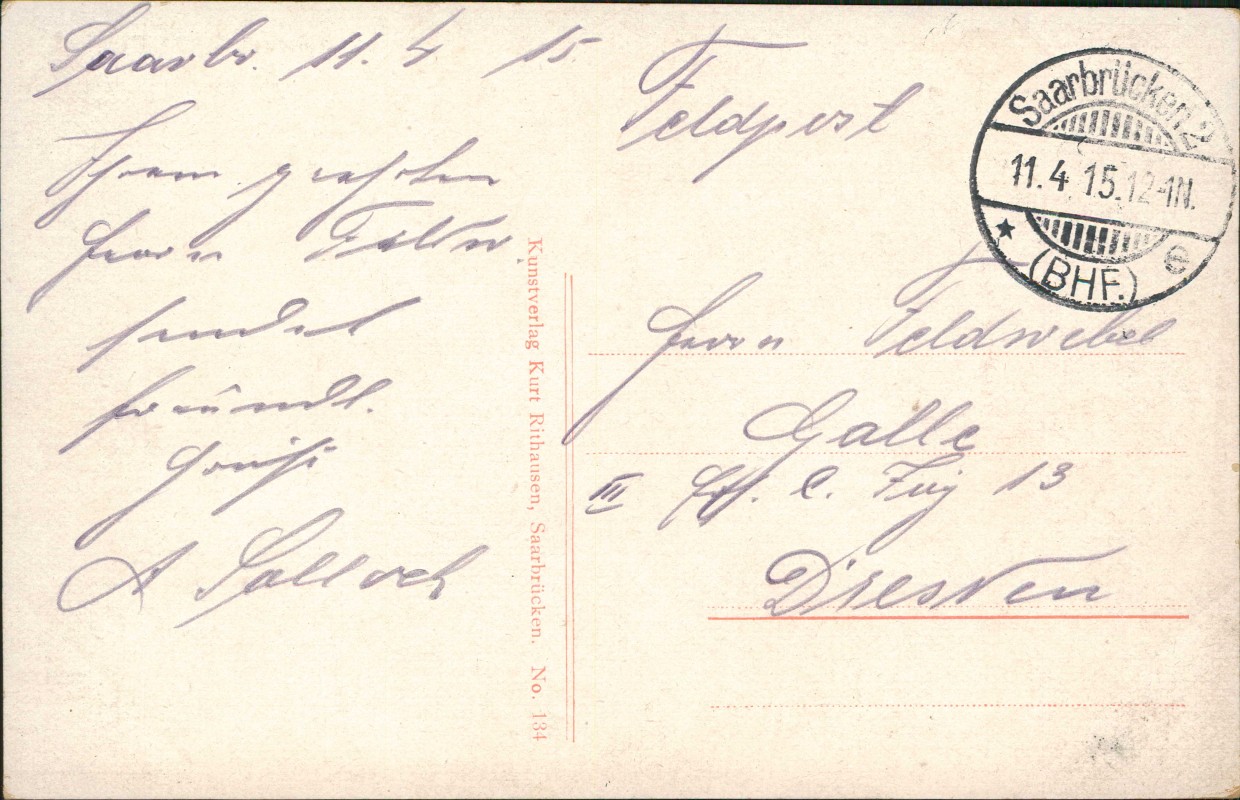 Saarbr. 11. 4 15
Ihrem geehrten
Herrn Feldw.
sendet
freundl.
Grüße
A Salloch
Feldpost
Saarbrücken 2
11.4 15.12-1N.
★ (BHF.) e
Herrn Feldwebel
Galle
III Ers. E. Zug 13
Dresden
Kunstverlag Kurt Rithausen, Saarbrücken. No. 134